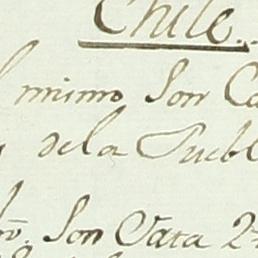 Chile.
mismo Son Ca
dela Puebl
Son Cata 2